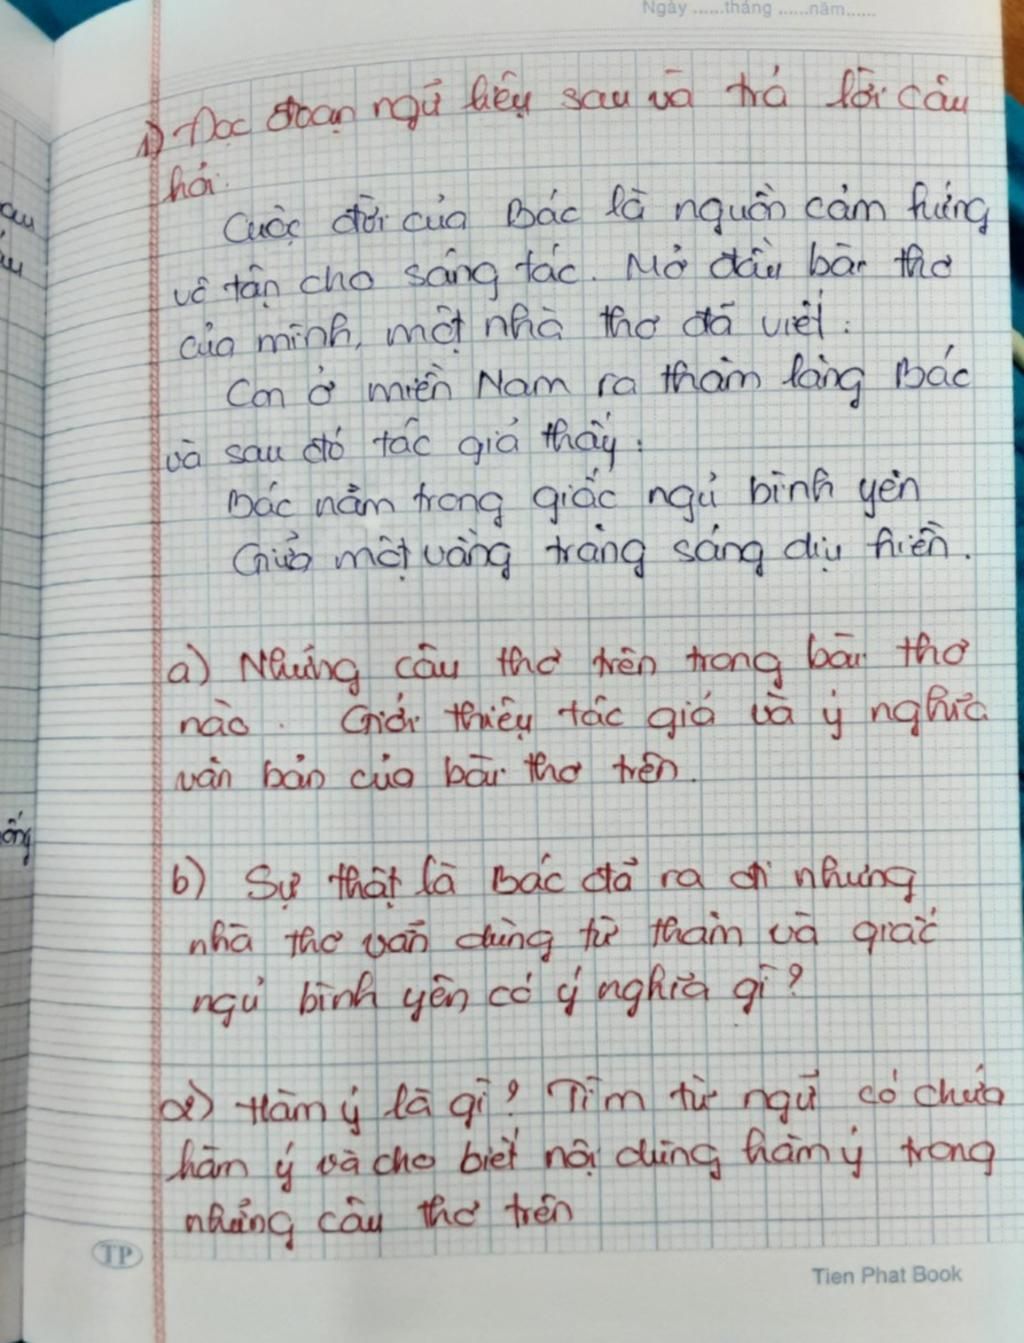 Ngày ......tháng ......năm......
1) Đọc đoạn ngữ liệu sau và trả lời câu
hỏi.
Cuộc đời của Bác là nguồn cảm hứng
vô tận cho sáng tác. Mở đầu bài thơ
của mình, một nhà thơ đã viết:
Con ở miền Nam ra thăm lăng Bác
và sau đó tác giả thấy:
Bác nằm trong giấc ngủ bình yên
Giữa một vầng trăng sáng dịu hiền.
a) Những câu thơ trên trong bài thơ
nào. Giới thiệu tác giả và ý nghĩa
văn bản của bài thơ trên.
b) Sự thật là Bác đã ra đi nhưng
nhà thơ vẫn dùng từ thăm và giấc
ngủ bình yên có ý nghĩa gì?
Hàm ý là gì? Tìm từ ngữ có chứa
hàm ý và cho biết nội dung hàm ý trong
những câu thơ trên
TP
Tien Phat Book